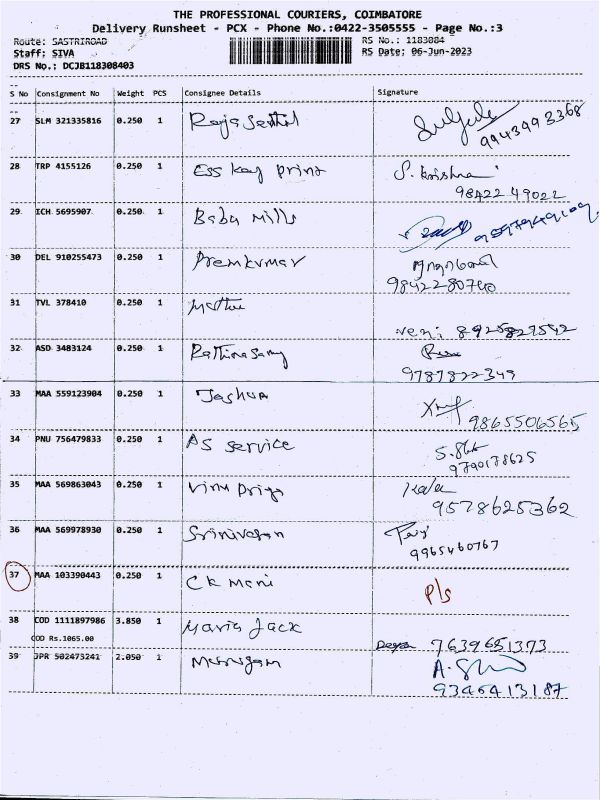 THE PROFESSIONAL COURIERS, COIMBATORE
Delivery Runsheet - PCX - Phone No.:0422-3505555 - Page No.:3
Route: SASTRIROAD RS No.: 1183084
Staff: SIVA RS Date: 06-Jun-2023
DRS No.: DCJB118308403
S No Consignment No Weight PCS Consignee Details Signature
27 SLM 321335816 0.250 1 Raja Senthil
9943993368
28 TRP 4155126 0.250 1 Ess key print S. Krishna
98422 49022
29 ICH 5695907 0.250 1 Babu Mills
30 DEL 910255473 0.250 1 Premkumar
9842280740
31 TVL 378410 0.250 1
veni 8925827542
32 ASD 3483124 0.250 1 Rathinasamy
9787822349
33 MAA 559123904 0.250 1 Joshua
9865506565
34 PNU 756479833 0.250 1 AS Service
9790178625
35 MAA 569863043 0.250 1 Vinu Priya Kala
9578625362
36 MAA 569978930 0.250 1 Srinivasan
9965460767
37 MAA 103390443 0.250 1 CK Mani P/s
38 COD 1111897986 3.850 1 Maria Jack
COD Rs.1065.00 7639651373
39 JPR 502473241 2.050 1 Murugan
9346413187